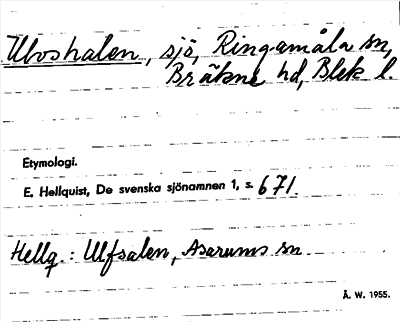 Ulvshalen, sjö, Ringamåla sn,
Bräkne hd, Blek l.
Etymologi.
E. Hellquist, De svenska sjönamnen 1, s. 671.
Hellq.: Ulfsalen, Asarums sn.
Å. W. 1955.